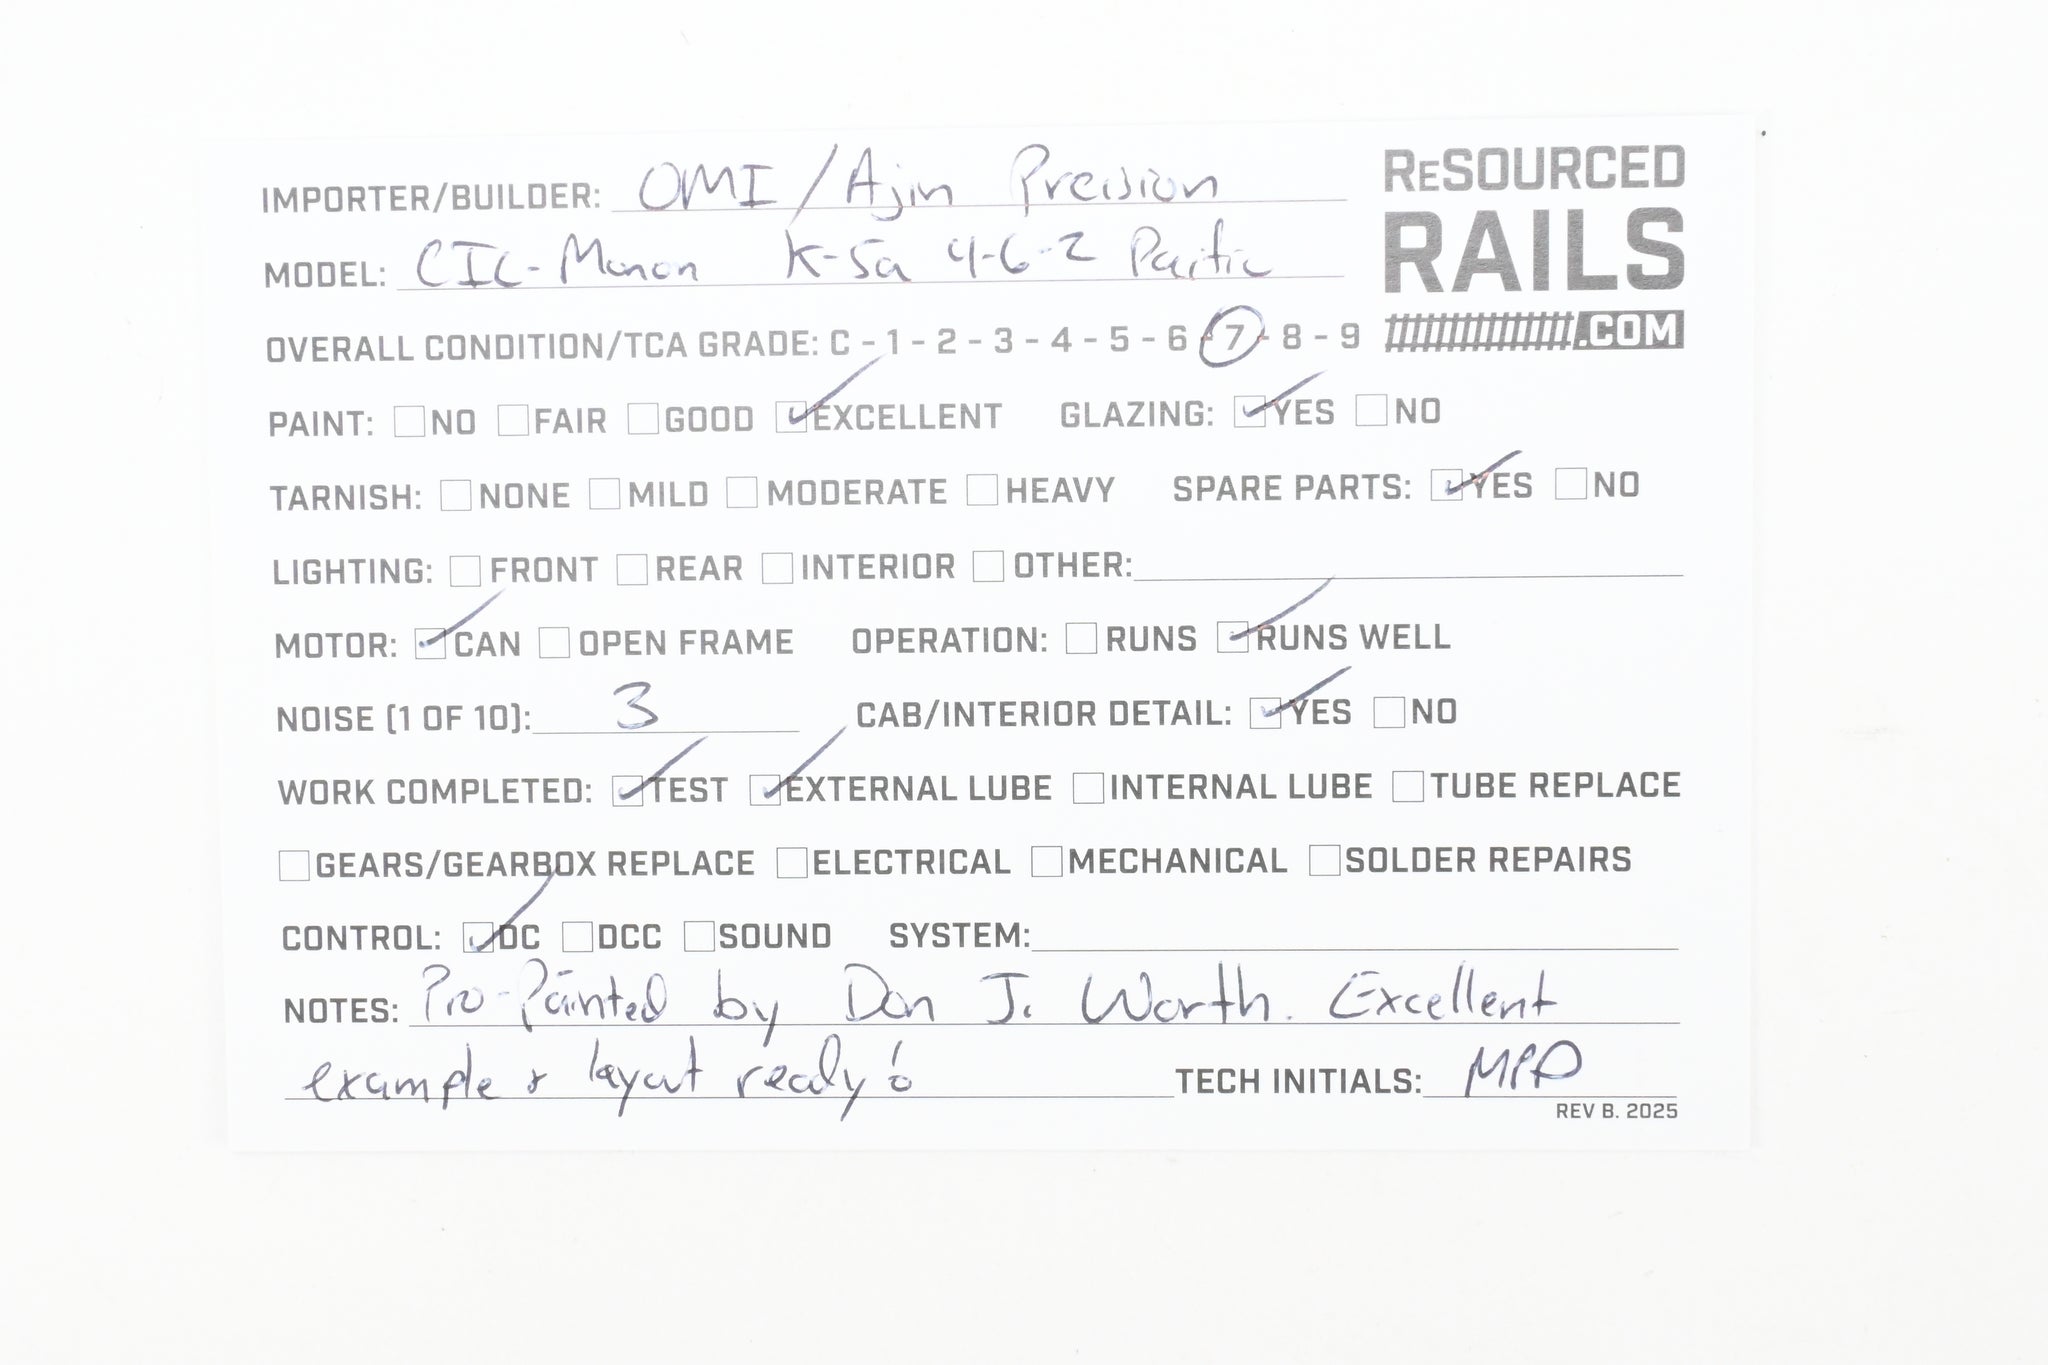 IMPORTER/BUILDER: OMI/Ajin Precision
RESOURCED
RAILS
.COM
MODEL: CIL-Monon K-5a 4-6-2 Pacific
OVERALL CONDITION/TCA GRADE: C - 1 - 2 - 3 - 4 - 5 - 6 - 7 - 8 - 9
PAINT: NO FAIR GOOD EXCELLENT GLAZING: YES NO
TARNISH: NONE MILD MODERATE HEAVY SPARE PARTS: YES NO
LIGHTING: FRONT REAR INTERIOR OTHER:
MOTOR: CAN OPEN FRAME OPERATION: RUNS RUNS WELL
NOISE (1 OF 10): 3 CAB/INTERIOR DETAIL: YES NO
WORK COMPLETED: TEST EXTERNAL LUBE INTERNAL LUBE TUBE REPLACE
GEARS/GEARBOX REPLACE ELECTRICAL MECHANICAL SOLDER REPAIRS
CONTROL: DC DCC SOUND SYSTEM:
NOTES: Pro-Painted by Don J. Worth. Excellent
example & layout ready! TECH INITIALS:
REV B. 2025